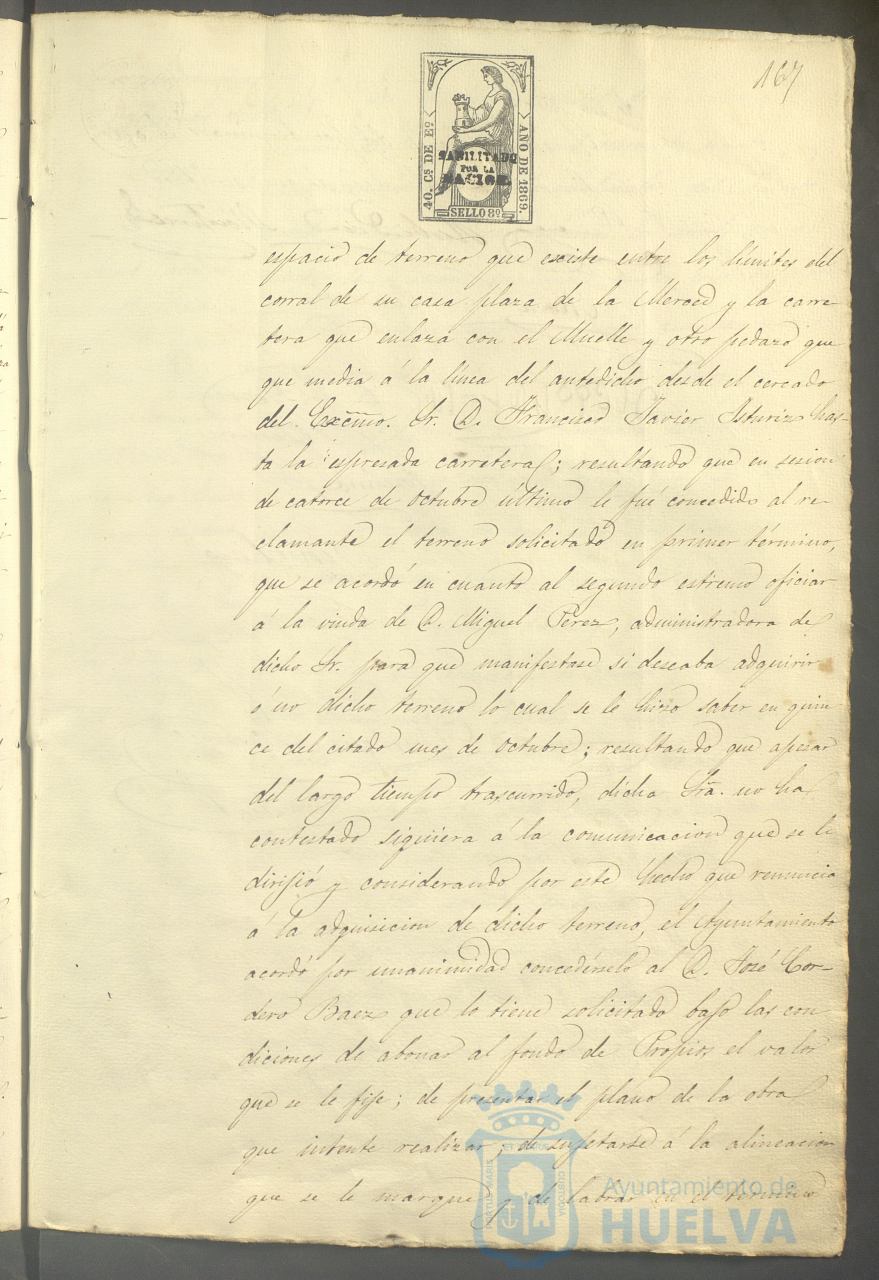 167
40. Cs DE Eo.
AÑO DE 1869.
HABILITADO
POR LA
NACION.
SELLO 8º
espacio de terreno que existe entre los límites del
corral de su casa plaza de la Merced y la carre-
tera que enlaza con el Muelle y otro pedazo que
que media á la línea del antedicho desde el cercado
del Excmo. Sr. D. Francisco Javier Isturiz has-
ta la espresada carretera; resultando que en sesion
de catorce de Octubre último le fué concedido al re-
clamante el terreno solicitado en primer término,
que se acordó en cuanto al segundo estremo oficiar
á la viuda de D. Miguel Perez, administradora de
dicho Sr. para que manifestase si deseaba adquirir
ó no dicho terreno lo cual se le hizo saber en quin
ce del citado mes de Octubre; resultando que apesar
del largo tiempo trascurrido, dicha Sra. no ha
contestado siquiera á la comunicacion que se le
dirijió y considerando por este hecho que renuncia
á la adquisicion de dicho terreno, el Ayuntamiento
acordó por unanimidad concedérselo al D. José Cor-
dero Baez que lo tiene solicitado bajo las con
diciones de abonar al fondo de Propios el valor
que se le fije; de presentar el plano de la obra
que intente realizar; de sujetarse á la alineacion
que se le marque y de labrar en el término
Ayuntamiento de
HUELVA